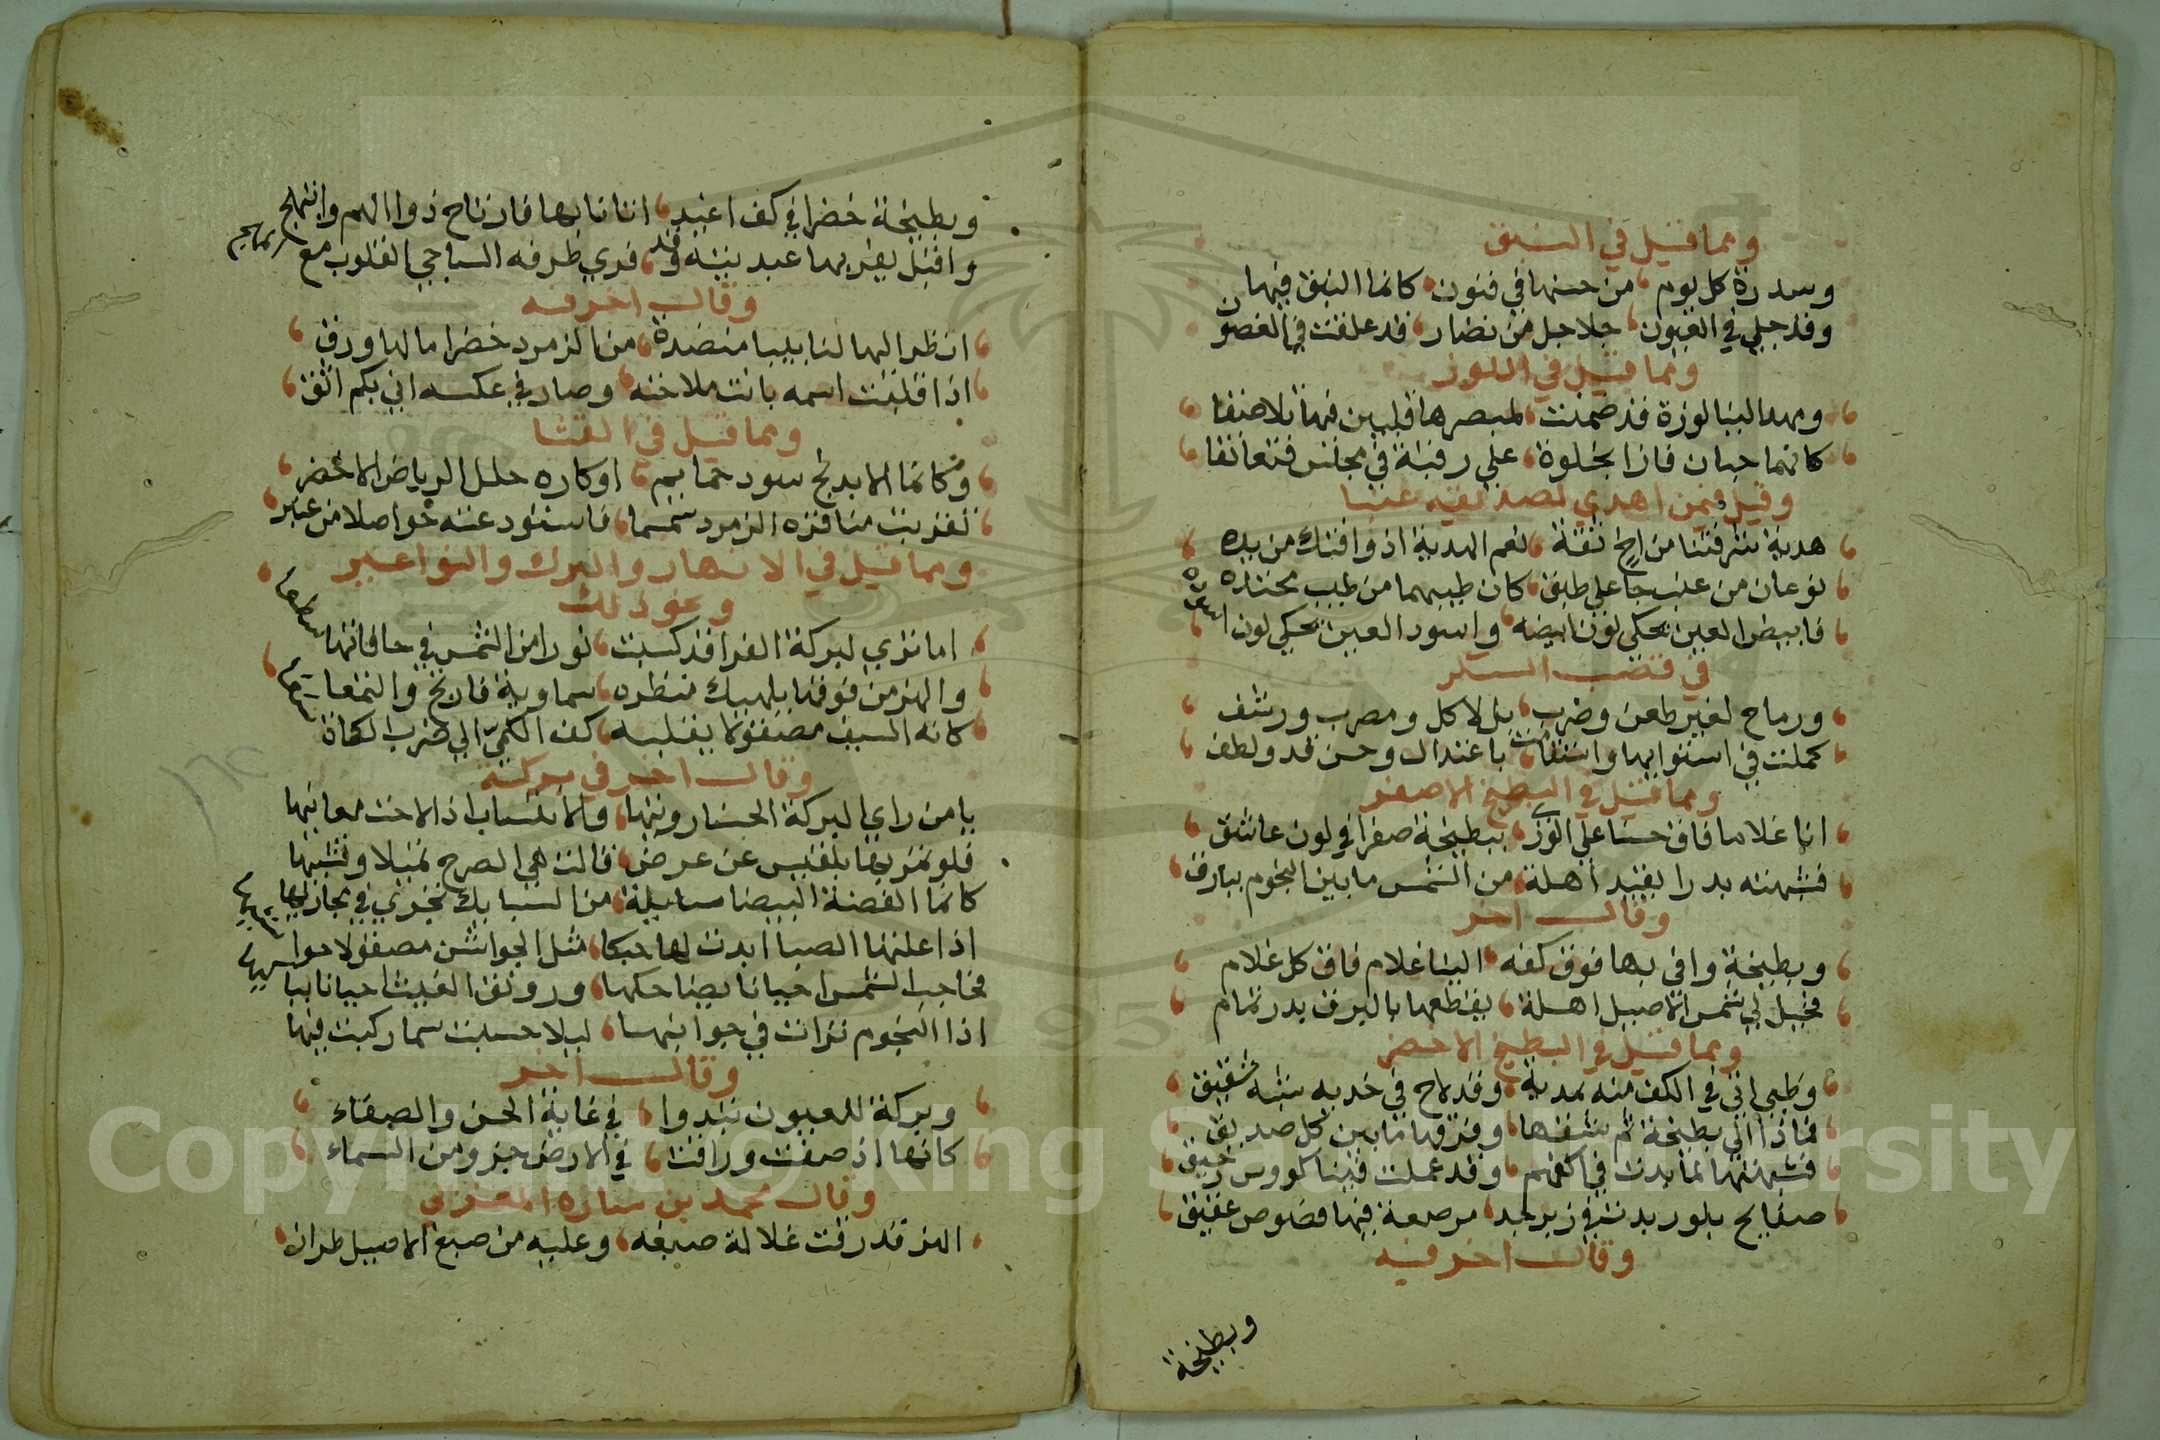 ومما قيل في النبق
وسدرة كل يوم من حسنها في فنون كانما النبق فيها
وقد جلي في العيون جلاجل من نضار قد علقت في الغصون
ومما قيل في اللوز
ومهد الينا لوزة قد ضمنت لمبصرها قلبين فيها تلاصقا
كانهما حبان فازا بخلوة على رقبة في مجلس فتعانقا
وقيل فيمن اهدي لصديقه عنبا
هدية شرفتنا من اخ ثقة نعم الهدية اذ وافتك من يده
نوعان من عنب جا على طبق كان طيبهما من طيب محتده
فابيض العين يحكي لون ابيضه واسود العين يحكي لون اسوده
في قصب السكر
ورماح لغير طعن وضرب بل لاكل ومص ورشف
كملت في استوايها واستقامت باعتدال وحسن قد ولطف
ومما قيل في البطيخ الاصفر
اتا غلاما فاق حسنا على الورى ببطيخة صفرا في لون عاشق
فشبهته بدرا يقد أهلة من الشمس ما بين النجوم ببارق
وقال اخر
وبطيخة وافى بها فوق كفه الينا غلام فاق كل غلام
فخيل لي شمس الاصيل اهلة يقطعها بالبرق بدر تمام
ومما قيل في البطيخ الاخضر
وظبي اتى في الكف منه بمدية وقد لاح في خديه شبه شقيق
فماذا الى بطيخة ثم شقها وفرقها ما بين كل صديق
فشبهتها لما بدت في اكفهم وقد عملت فينا كووس رحيق
صفايح بلور بدت في زبرجد مرصعة فيها فصوص عقيق
وقال اخر فيه
وبطيخة
وبطيخة خضرا في كف اغيد اتانا بها فارتاح ذوا الهم وابتهج
واقبل يفريها عبد بيته وقد فري طرفه الساجي القلوب مع المهج
وقال اخر فيه
انظر اليها لنا بيبا منضدة من الزمرد خضرا ما لها ورق
اذا قلبت اسمه بانت ملاحته وصار في عكسه اني بكم اثق
ومما قيل في القثا
وكانما الابدنج سود حمايم اوكاره حلل الرياض الاخضر
نقرت مناقره الزمرد سمسما فاستود عته حواصلا من عنبر
ومما قيل في الانهار والبرك والنواعير
وغير ذلك
اما ترى لبركة الغرا قد كسيت نورا من الشمس في حافاتها سطعا
والنهر من فوقها يلهيك منظره سماوية فارتج والتمعا
كانه السيف مصقولا يقلبه كف الكمي الى ضرب الكماة
وقال اخر في بركة
يا من راي البركة الحسنا رويتها والانسات اذ لاحت معانيها
فلو تمر بها بلقيس عن عرض قالت هي الصرح تمثيلا وتشبيها
كانما الفضة البيضا سايلة من السبايك تجري في مجاريها
اذا علتها الصبا ابدت لها حبكا مثل الجواشن مصقولا حواشيها
فحاجب الشمس احيانا يضاحكها وروثق الغيث احيانا يبا
اذا النجوم تراات في جوانبها ليلا حسبت سما ركبت فيها
وقال اخر
وبركة للعيون تبدوا في غاية الحسن والصفاء
كانها اذ صفت وراقت في الارض جزو من السماء
وقال محمد بن سارة المغربي
النهر قد رقت غلالة صبغه وعليه من صبغ الاصيل طراز